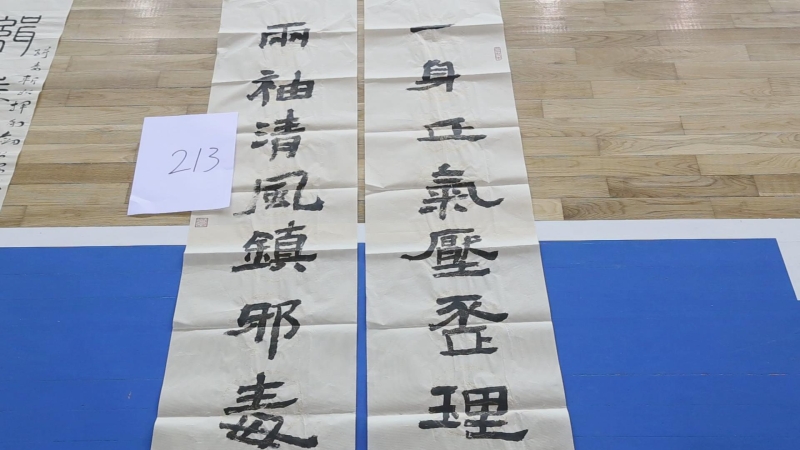 一身正氣壓歪理
兩袖清風鎮邪毒
213